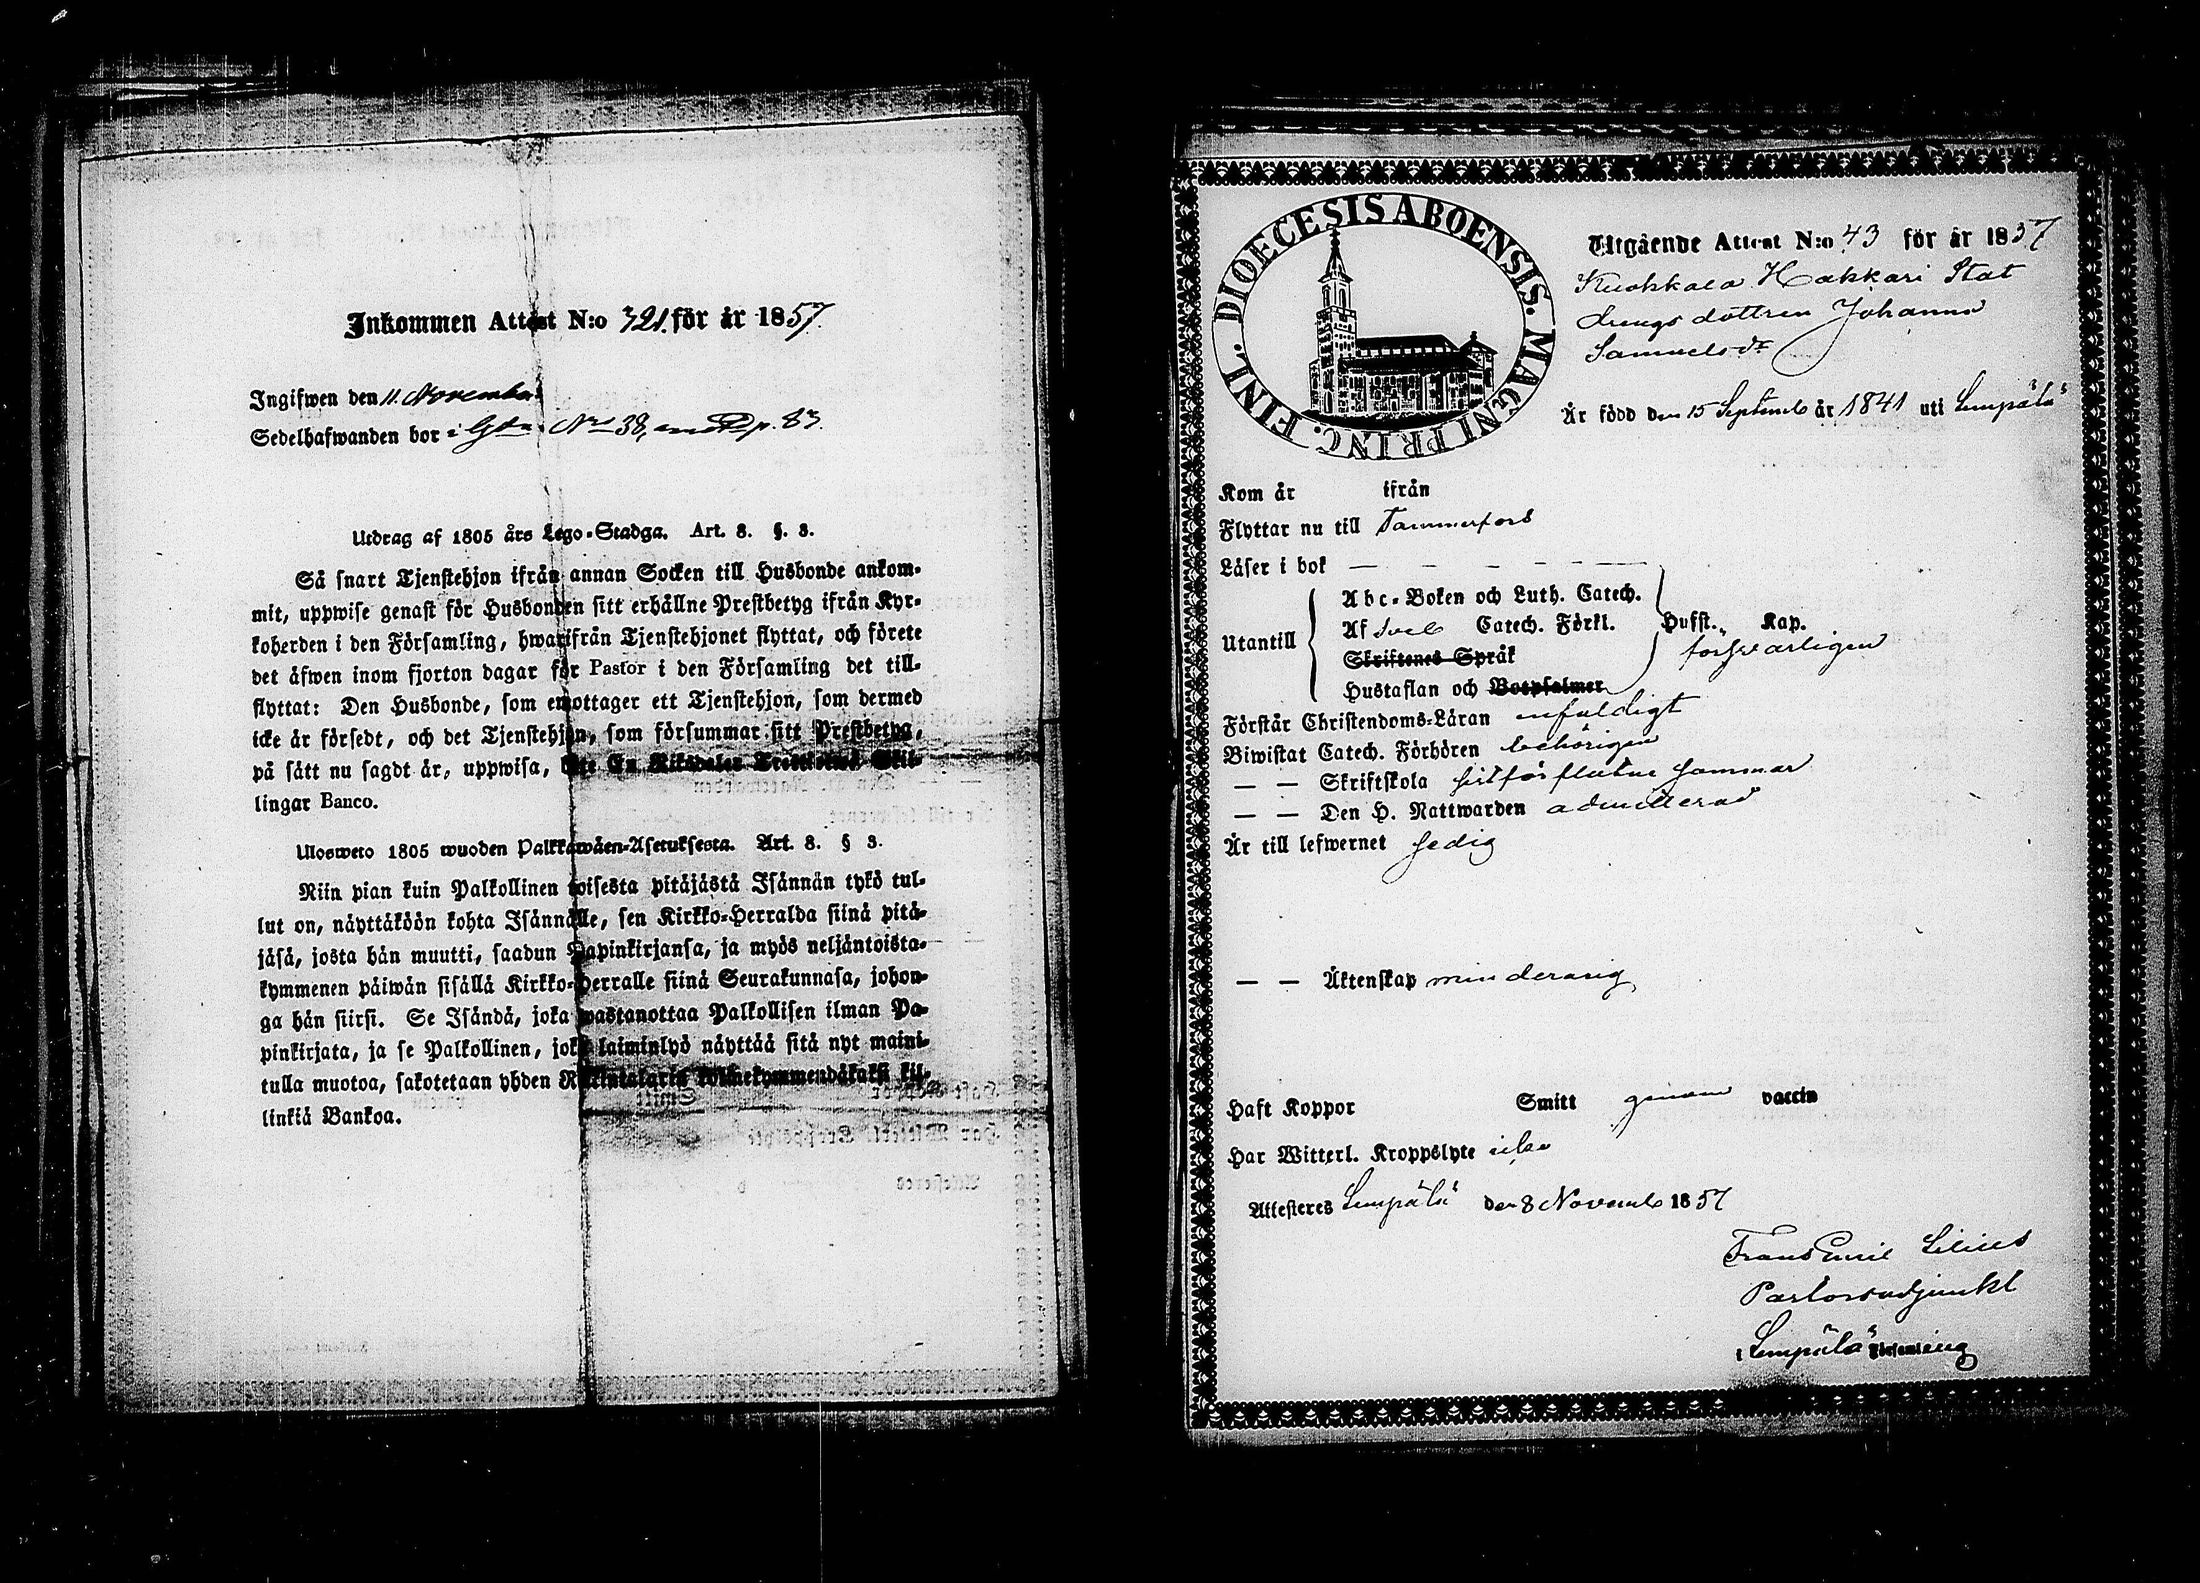 Inkommen Attest N:o 321. för år 1857.
Ingifwen den 11. November
Sedelhafwanden bor i Gdn. N:o 38, p. 83.
Utdrag af 1805 års Lego-Stadga. Art. 8. §. 3.
Så snart Tjenstehjon ifrån annan Socken till Husbonde ankom-
mit, uppwise genast för Husbonden sitt erhållne Prestbetyg ifrån Kyr-
koherden i den Församling, hwarifrån Tjenstehjonet flyttat, och förete
det äfwen inom fjorton dagar för Pastor i den Församling det till-
flyttat: Den Husbonde, som emottager ett Tjenstehjon, som dermed
icke är försedt, och det Tjenstehjon, som försummar sitt Prestbetyg,
på sätt nu sagdt är, uppwisa, böte En Riksdaler Trettiotwå Skil-
lingar Banco.
Ulosweto 1805 wuoden Palkkawäen-Asetuksesta. Art. 8. § 3.
Niin pian kuin Palkollinen toisesta pitäjästä Isännän tykö tul-
lut on, näyttäköön kohta Isännälle, sen Kirkko-Herralda siinä pitä-
jäsä, josta hän muutti, saadun Papinkirjansa, ja myös neljäntoista-
kymmenen päiwän sisällä Kirkko-Herralle siinä Seurakunnasa, johon-
ga hän siirsi. Se Isändä, joka wastanottaa Palkollisen ilman Pa-
pinkirjata, ja se Palkollinen, joka laiminlyö näyttää sitä nyt maini-
tulla muotoa, sakotetaan yhden Riikintalarin kolmekymmendäkaksi kil-
linkiä Bankoa.
DIOECESIS ABOENSIS. MAGNI PRINC. FINL.
Utgående Attest N:o 43 för år 1857
Kuokkala Hakkari Stat
drengs dottren Johanna
Samuels dr
Är född den 15 Septemb år 1841 uti Lempälä
Kom år ifrån
Flyttar nu till Tammerfors
Läser i bok — — — — — —
Utantill
Abc-Boken och Luth. Catech.
Af Sveb Catech. Förkl. Hufst. „ Kap.
Skriftenes Språk försvarligen
Hustaflan och Botpsalmer
Förstår Christendoms-Läran enfaldigt
Biwistat Catech. Förhören behörigen
— — Skriftskola sistförflutne sommar
— — Den H. Nattwarden admitterad
Är till lefwernet sedig
— — Äktenskap minderårig
Haft Koppor Smitt genom vaccin
Har Witterl. Kroppslyte icke
Attesteres Lempälä den 8 Novemb 1857
Frans Emil Lilius
Pastorsadjunkt
i Lempälä Församling